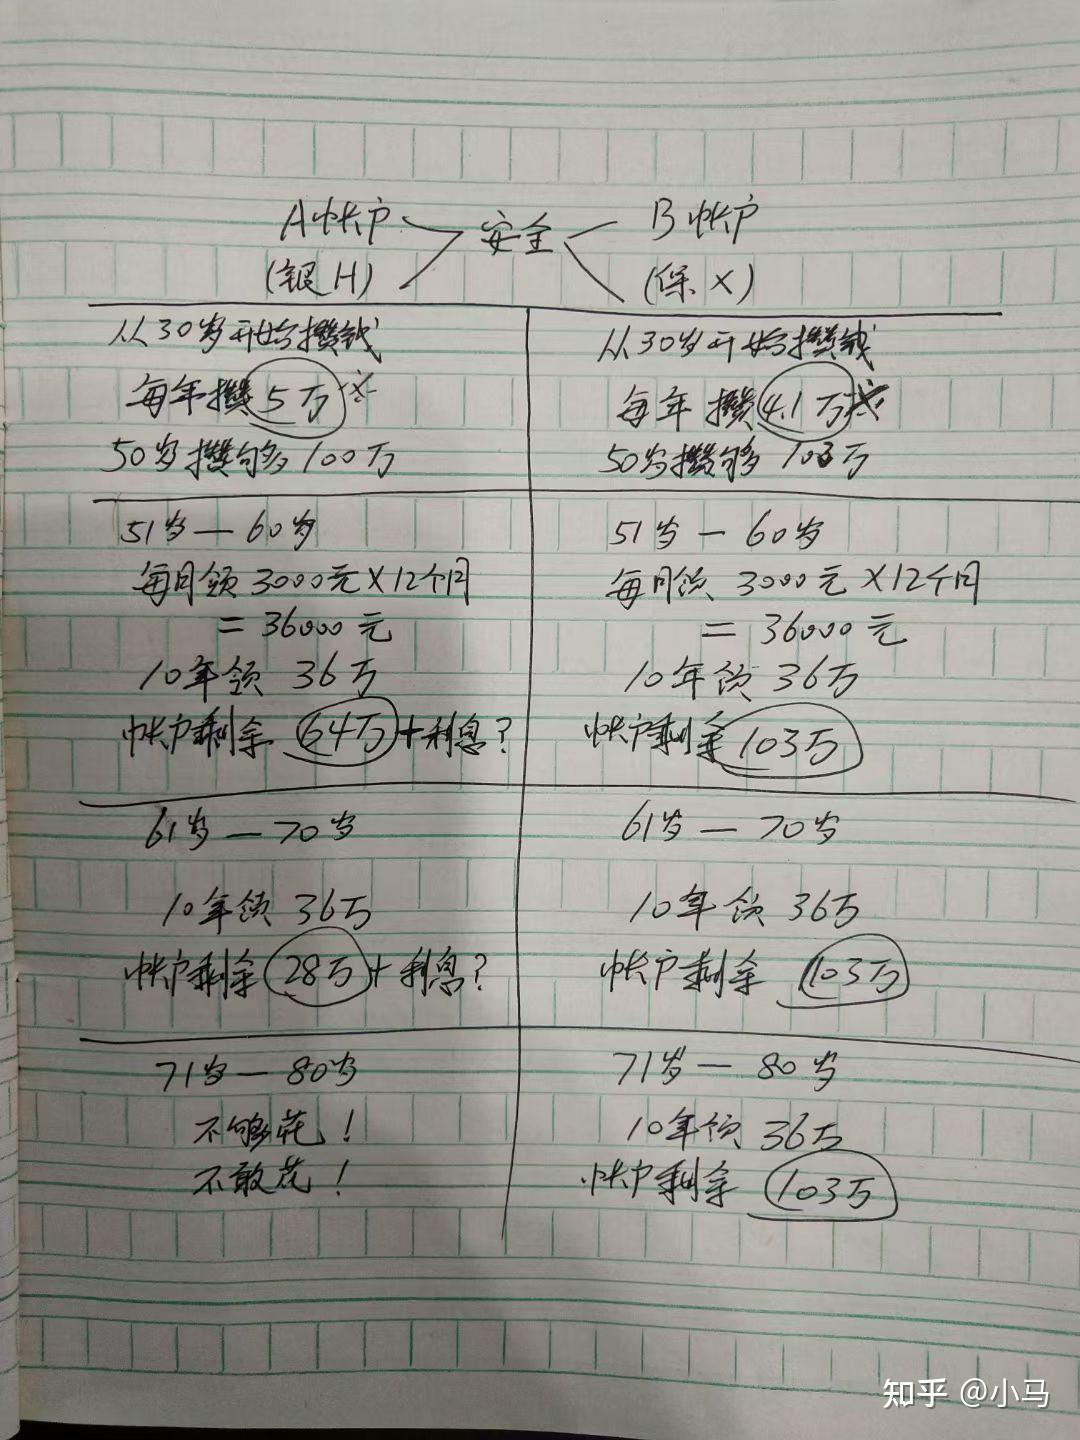 A帐户
安全
B帐户
(银H)
(保X)
从30岁开始攒钱
每年攒5万
50岁攒够100万
51岁—60岁
每月领3000元×12个月
=36000元
10年领36万
帐户剩余64万+利息?
61岁—70岁
10年领36万
帐户剩余28万+利息?
71岁—80岁
不够花!
不敢花!
从30岁开始攒钱
每年攒4.1万
50岁攒够103万
51岁—60岁
每月领3000元×12个月
=36000元
10年领36万
帐户剩余103万
61岁—70岁
10年领36万
帐户剩余103万
71岁—80岁
10年领36万
帐户剩余103万
知乎 @小马